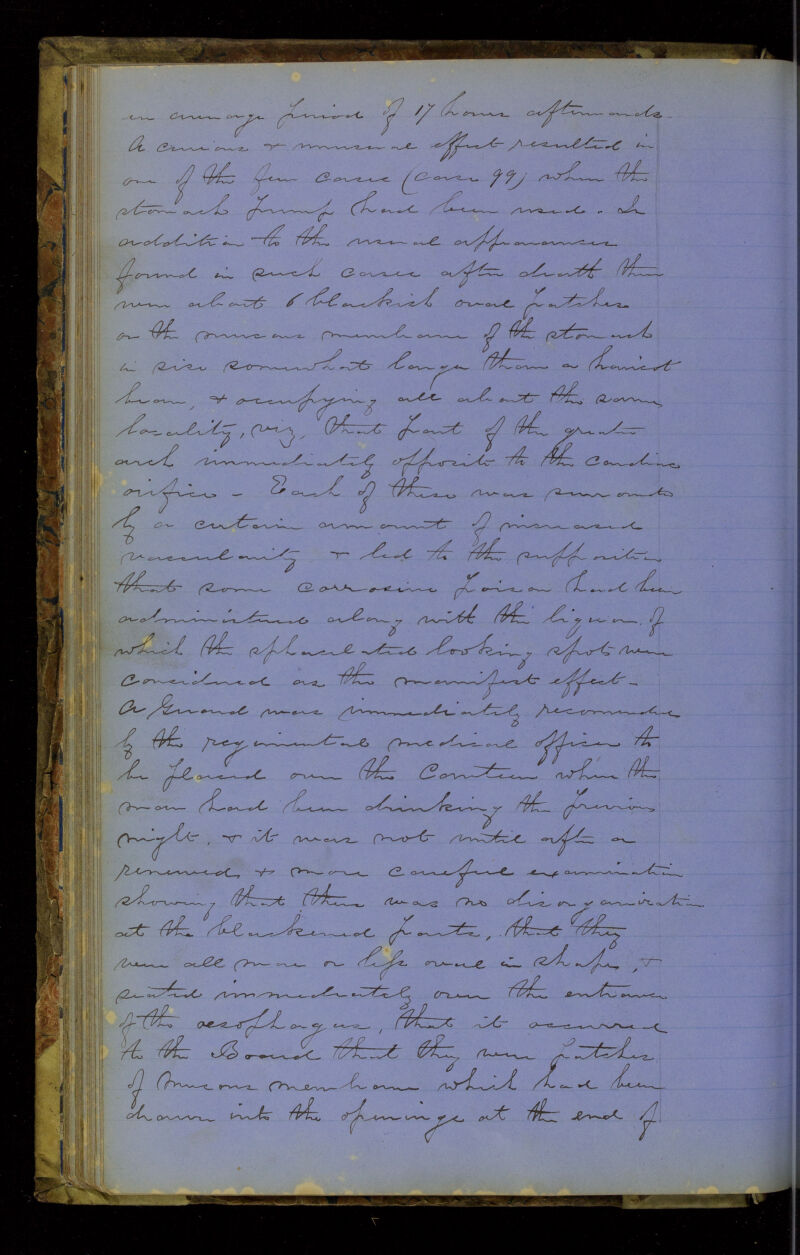 an average period of 17 hours afterwards.
A curious & unusual effect resulted in
one of the few cases (case 99) when the
stomach pump had been used. In
addition to the usual appearances
found in such cases after death there
were about 6 blackish oval patches
on the mucous membrane of the stomach
in size somewhat larger than a haricot
bean, & occupying all about the same
locality, viz, that part of the greater
arch immediately opposite to the cardiac
orifice - Each of these was surrounded
by a certain amount of increased
vascularity & led to the supposition
that some corrosive poison had been
administered along with the liquor of
which the sphacelated looking spots were
considered as the manifest effect -
A Guard was immediately recommended
by the regimental medical officer to
be placed over the Canteen where the
man had been drinking the previous
night, & it was not until after a
renewed & more careful examination
showing that there was no disorganization
at the blackened parts, that they
were all more or less oval in shape, &
seated immediately over the entrance
of the oesophagus, that it occurred
to the Board that they were patches
of mucous membrane which had been
drawn into the openings at the end of